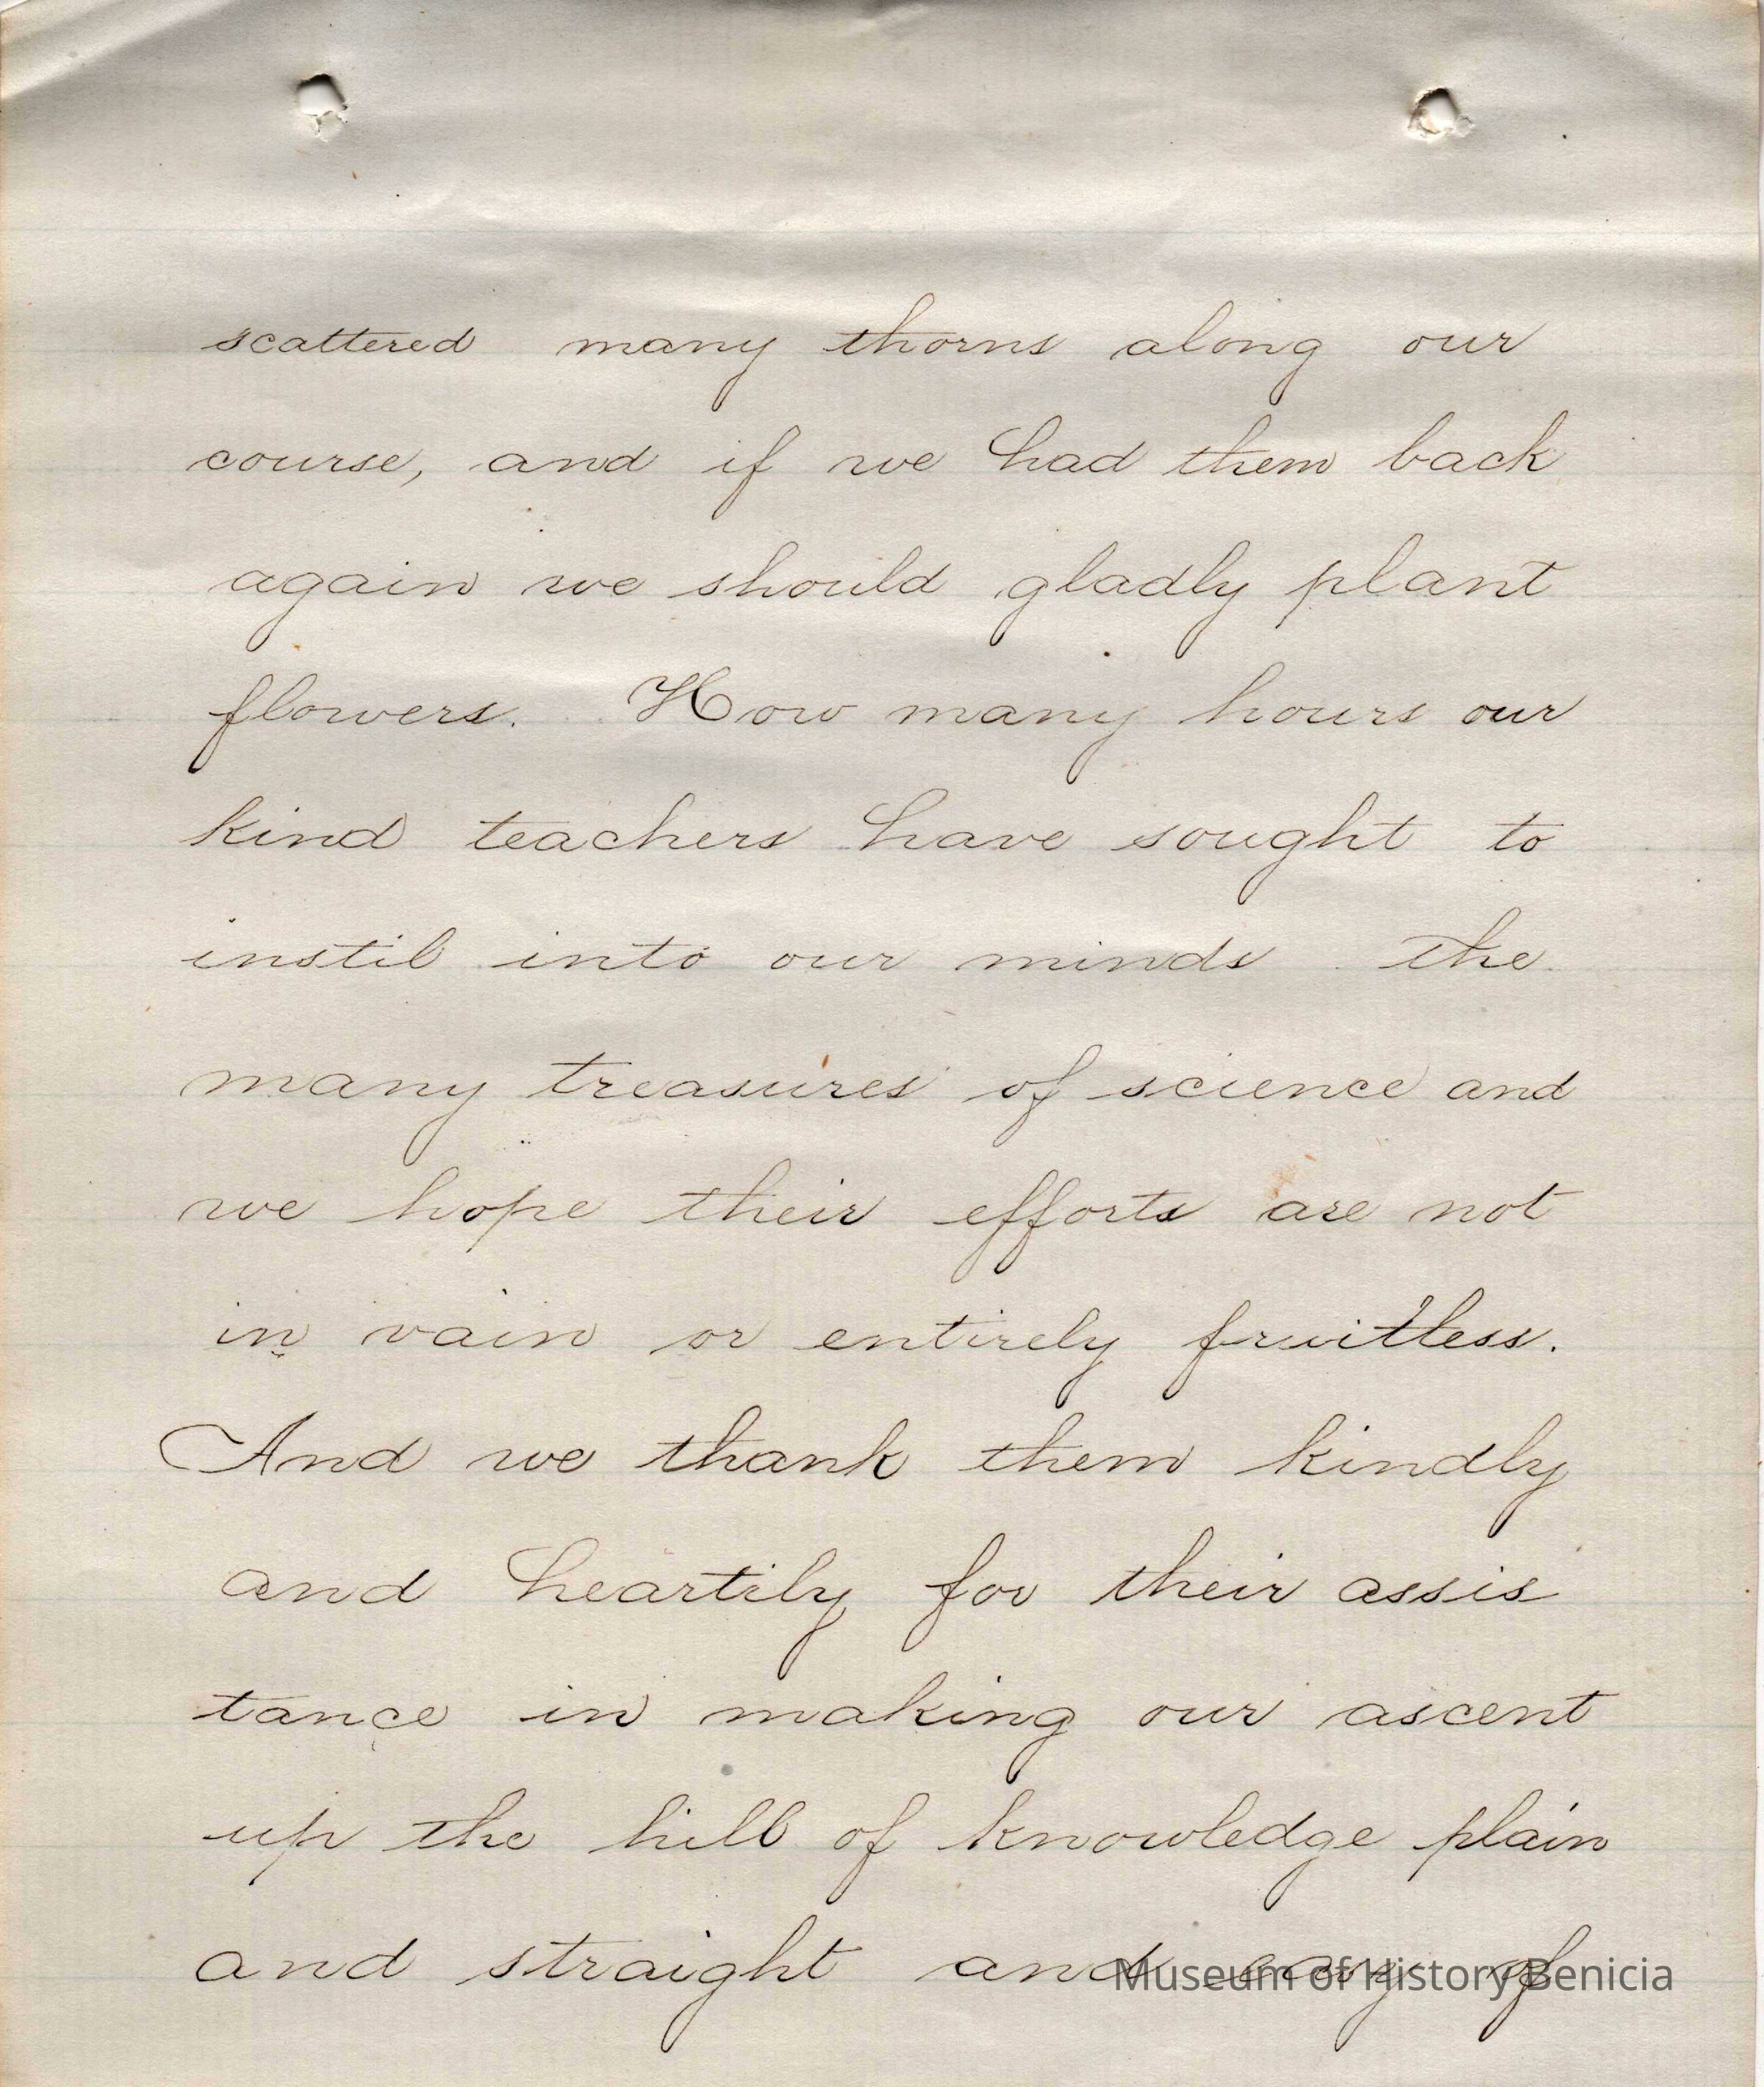 scattered many thorns along our
course, and if we had them back
again we should gladly plant
flowers. How many hours our
kind teachers have sought to
instil into our minds the
many treasures of science and
we hope their efforts are not
in vain or entirely fruitless.
And we thank them kindly
and heartily for their assis
tance in making our ascent
up the hill of knowledge plain
and straight and easy of
Museum of History Benicia